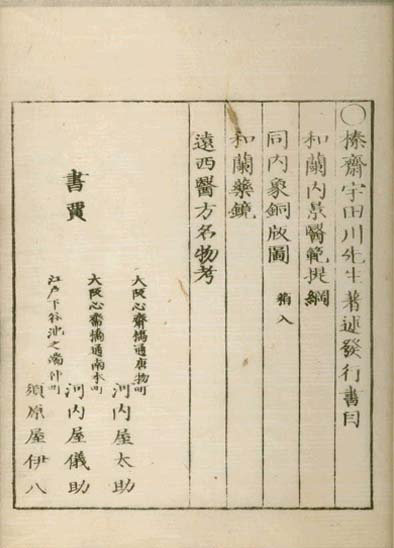 ○榛齋宇田川先生著述發行書目
和蘭内景醫範提綱
同内象銅版圖 箱入
和蘭藥鏡
遠西醫方名物考
書賈
大阪心齋橋通唐物町 河内屋太助
大阪心齋橋通南本町 河内屋儀助
江戸下谷池之端仲町 須原屋伊八